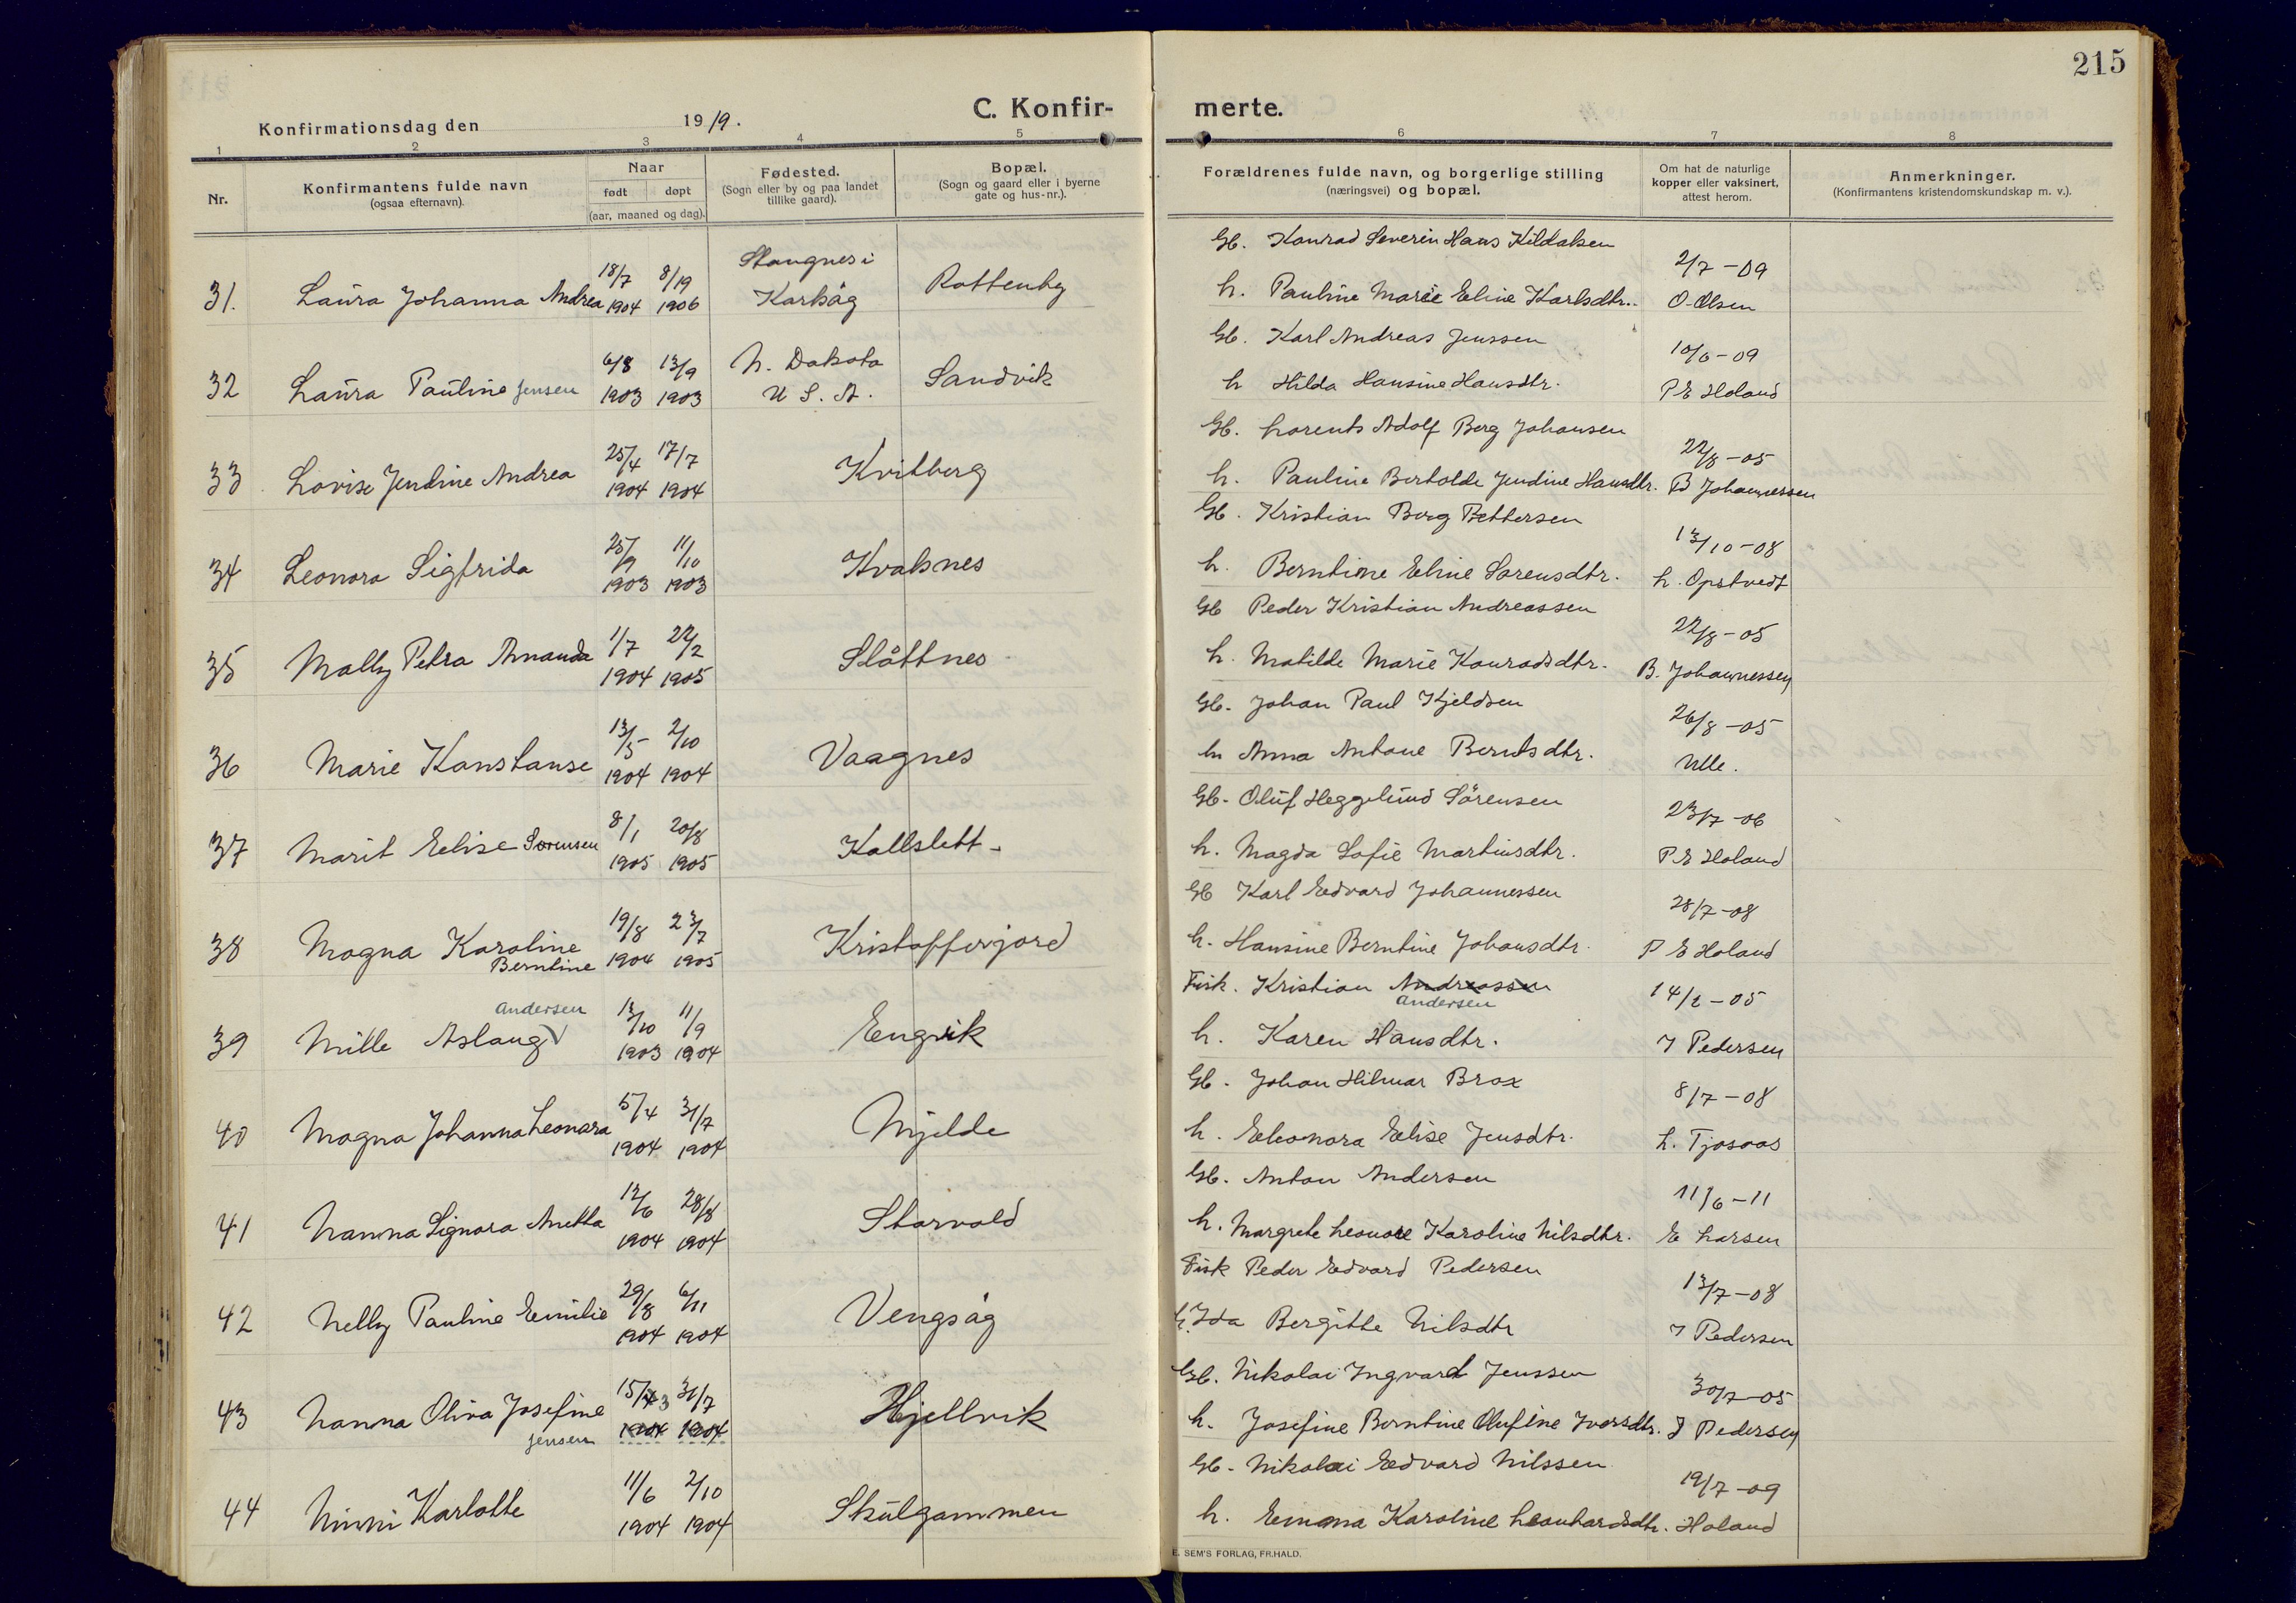 215
C. Konfir- merte.
Konfirmationsdag den 1919.
1 2 3 4 5 6 7 8
Nr.
Konfirmantens fulde navn
(ogsaa efternavn).
Naar
født døpt
(aar, maaned og dag).
Fødested.
(Sogn eller by og paa landet
tillike gaard).
Bopæl.
(Sogn og gaard eller i byerne
gate og hus-nr.).
Forældrenes fulde navn, og borgerlige stilling
(næringsvei) og bopæl.
Om hat de naturlige
kopper eller vaksinert,
attest herom.
Anmerkninger.
(Konfirmantens kristendomskundskap m. v.).
Gb. Konrad Severin Hans Kildalsen
18/7 8/19 Stangnes i 2/7 - 09
31. Laura Johanna Andrea 1904 1906 Karlsåg Rottenby h. Pauline Marie Eline Karlsdtr. O. Olsen
Gb. Karl Andreas Jenssen
6/8 13/9 N. Dakota 10/6 - 09
32 Laura Pauline Jensen 1903 1903 U. S. A. Sandvik h Hilda Hansine Hansdtr. P E Holand
Gb. Lorents Adolf Berg Johansen
25/4 17/7 22/8 - 05
33 Lovise Jendine Andrea 1904 1904 Kvitberg h. Pauline Bertolde Jendine Hansdtr. B Johannessen
Gb. Kristian Berg Pettersen
25/9 11/10 13/10 - 08
34 Leonora Sigfrida 1903 1903 Kvalsnes h. Berntine Eline Sorensdtr. L. Opstvedt
Gb Peder Kristian Andreassen
1/7 22/2 22/8 - 05
35 Mally Petra Amanda 1904 1905 Slåttnes h. Matilde Marie Konradsdtr. B. Johannessen
Gb. Johan Paul Kjeldsen
13/5 2/10 26/8 - 05
36 Marie Konstanse 1904 1904 Vaagnes h Anna Antone Berntsdtr. Ulle.
Gb. Oluf Heggelund Sörensen
8/1 20/8 23/7 - 06
37 Marit Elise Sørensen 1905 1905 Kallslett h. Magda Sofie Martinsdtr. P. E Holand
Gb Karl Edvard Johannessen
19/8 23/7 28/7 - 08
38 Magna Karoline Berntine 1904 1905 Kristofferjord h. Hansine Berntine Johansdtr. P E Holand
Fisk. Kristian Andreassen Andersen
Andersen 13/10 11/9 14/2 - 05
39 Mille Aslaug 1903 1904 Engvik h. Karen Hansdtr. J Pedersen
Gb. Johan Hilmar Brox
5/4 31/7 8/7 - 08
40 Magna Johanna Leonora 1904 1904 Mjelde h. Eleonora Elise Jensdtr. L. Tjosaas
Gb. Anton Andersen
12/6 28/8 11/6 - 11
41 Nanna Signora Anetta 1904 1904 Storvold h. Margrete Leonore Karoline Nilsdtr. E Larsen
Fisk Peder Edvard Pedersen
29/8 6/11 13/7 - 08
42 Nelly Pauline Emilie 1904 1904 Vengsåg h. Ida Bergitte Nilsdtr J Pedersen
Gb. Nikolai Ingvard Jenssen
15/3 31/7 30/7 - 05
43 Nanna Oliva Josefine Jensen 1904 1904 Hjellvik h. Josefine Berntine Olufine Iversdtr. J Pedersen
Gb. Nikolai Edvard Nilssen
11/6 2/10 19/7 - 09
44 Ninni Karlotte 1904 1904 Skulgammen h. Emma Karoline Leonhardsdtr. Holand
E. SEM'S FORLAG, FR.HALD.